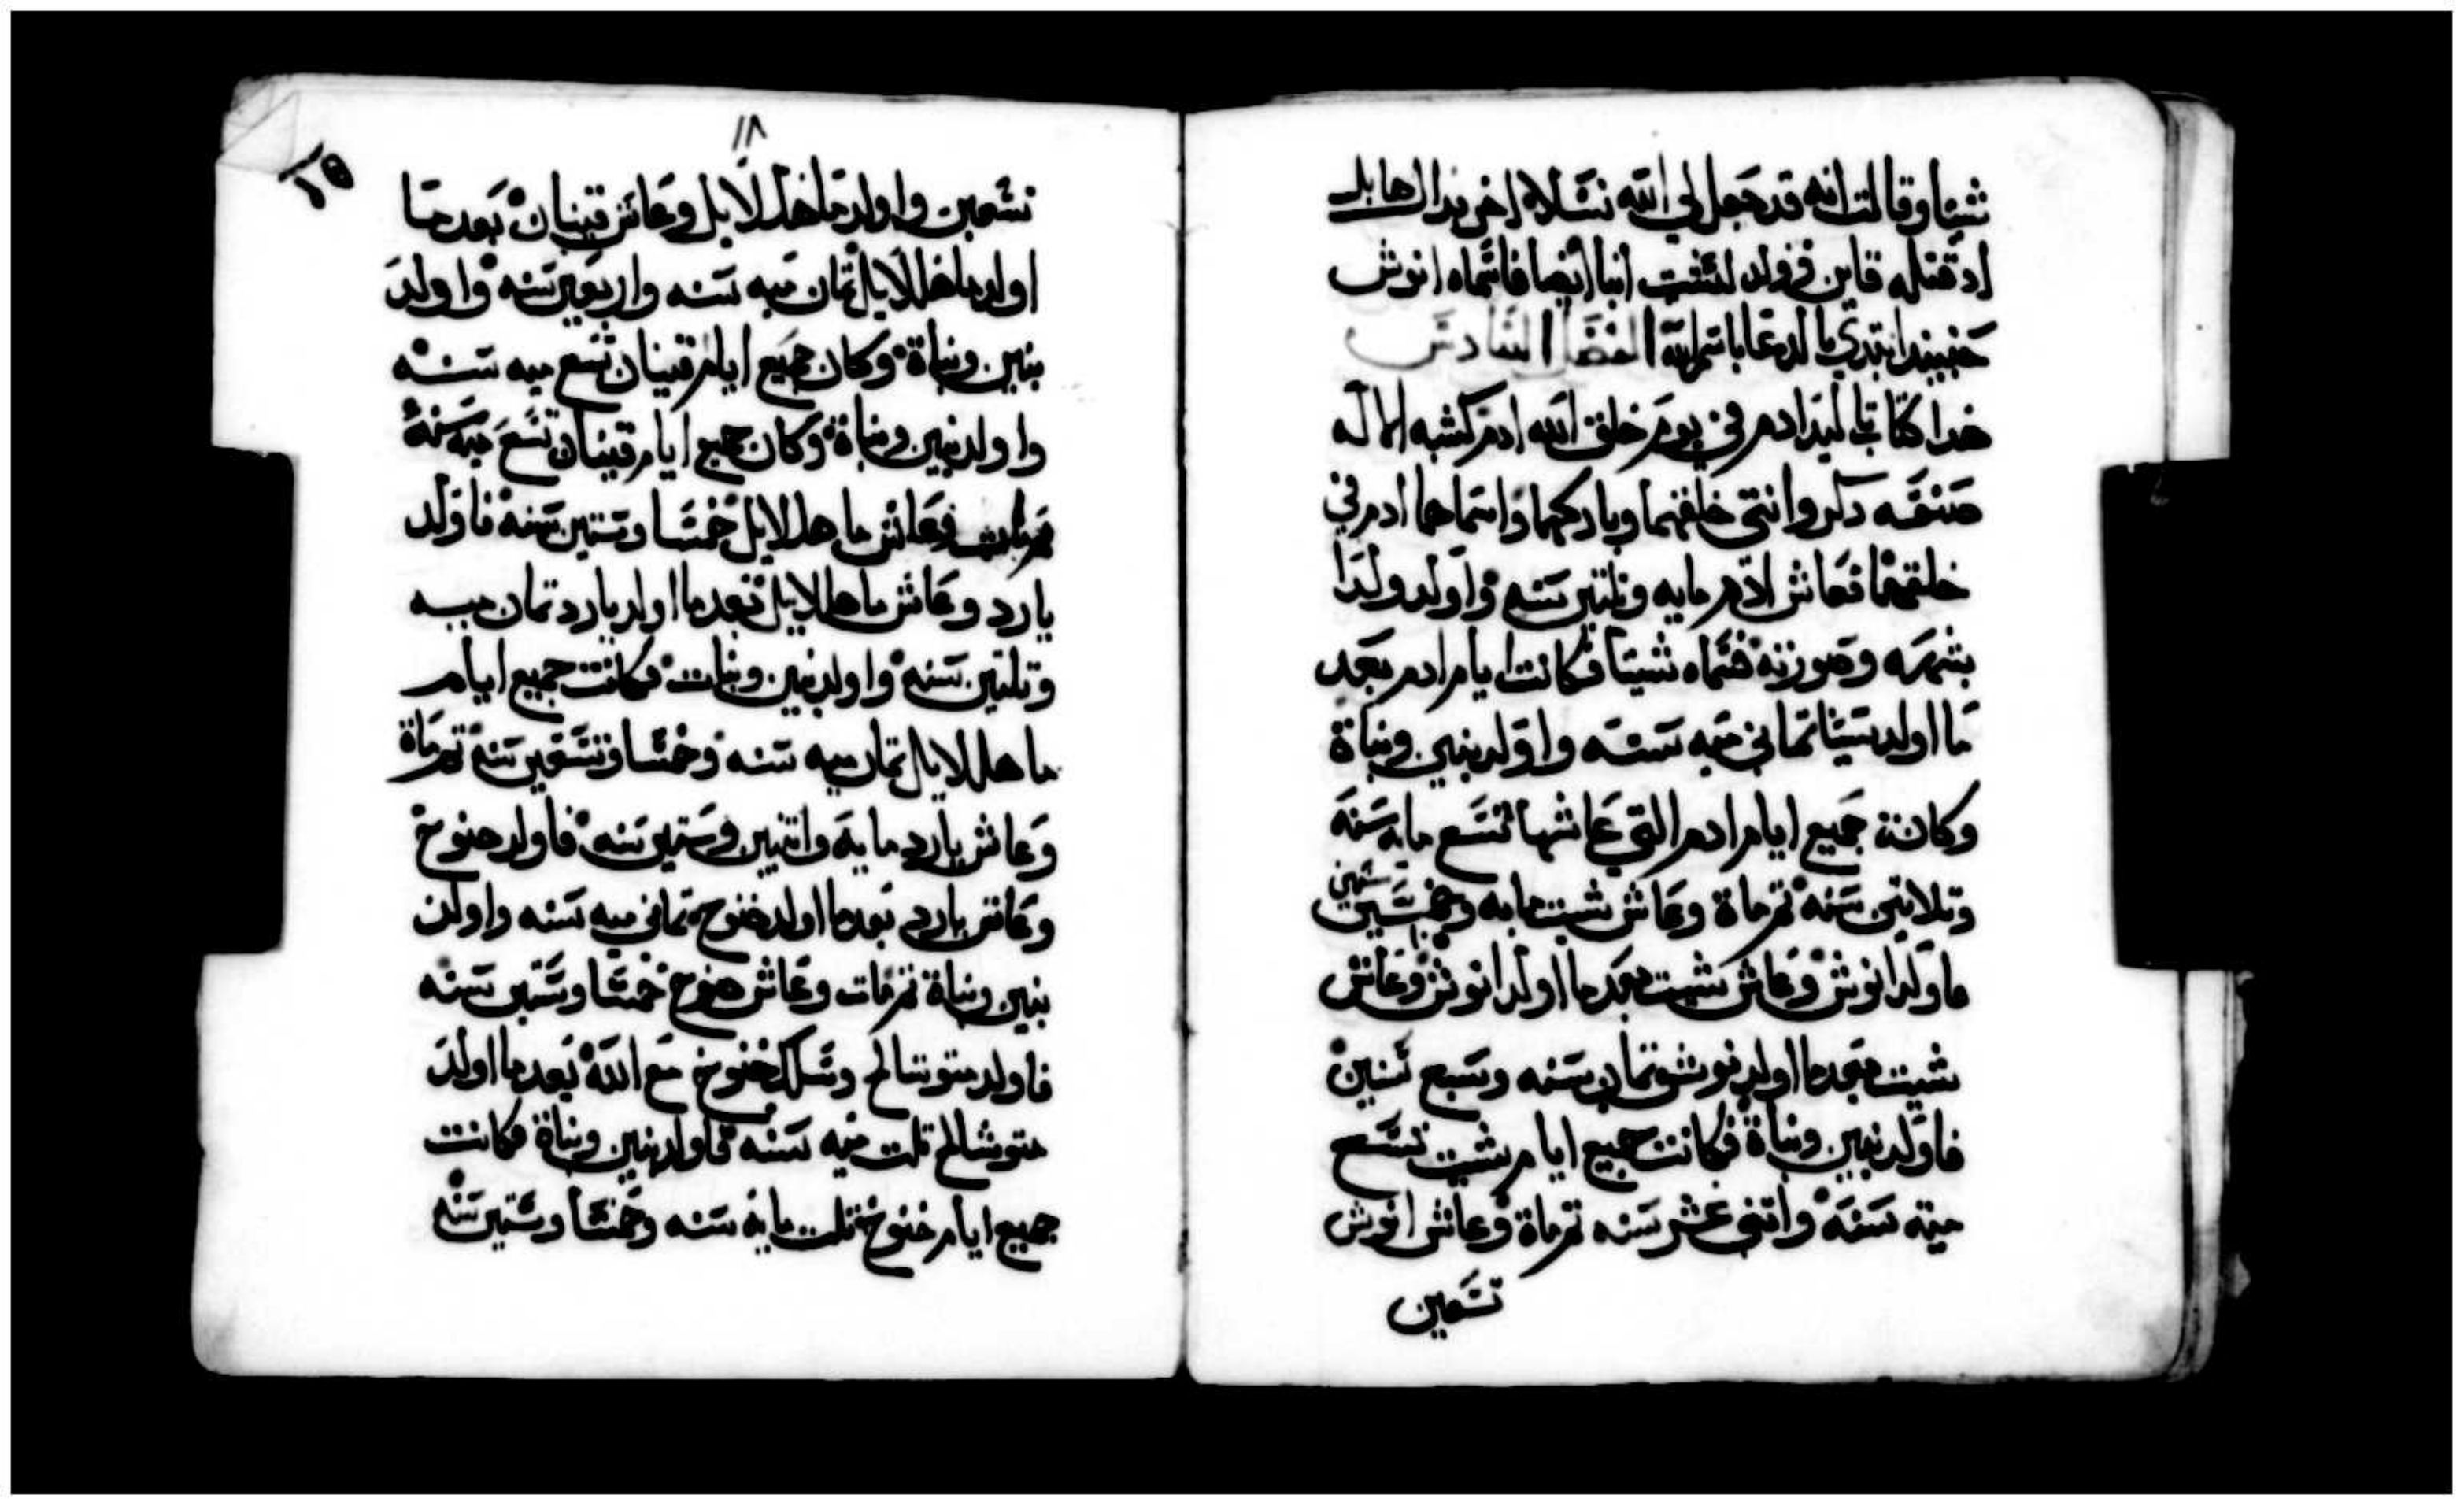 شيتا وقالت انه قد جعل لي الله نسلا اخر بدال هابل
اد قتله قاين فولد لشيت ابنا ايضا فاسماه انوش
حينيد ابتدي بالدعا باسم الله الفصل السادس
هدا كتاب تاليد ادم في يوم خلق الله ادم كشبه الاله
صنعه دكر وانتي خلقهما وباركهما واسماهما ادم في
خلقهما فعاش ادم مايه وتلتين سنه واولد ولدا
بشبهه وصورته فسماه شيتا فكانت ايام ادم بعد
ما اولد شيتا تماني ميه سنه واولد بنين وبناة
وكانة جميع ايام ادم التي عاشها تسع مايه سنه
وتلاتين سنه تم ماة وعاش شيت مايه وخمسين سنين
ماولد انوش وعاش شيت بعد ما اولد انوش وعاش
شيت بعدما اولد نوش تمان سنه وسبع سنين
فاولد بنين وبناة فكانت جميع ايام شيت تسع
ميته سنه واتني عشر سنه تم ماة وعاش انوش
تسعين
١١٨
١٥
تسعين واولد ماهللايل وعاش قينان بعد ما
اولد ماهللايل تمان ميه سنه واربعين سنه واولد
بنين وبناة وكان جميع ايام قينان تسع ميه سنه
واولد بنين وبناة وكان جميع ايام قينان تسع ميه سنه
تم مات فعاش ماهللايل خمسا وستين سنه فاولد
يارد وعاش ماهللايل بعد ما اولد يارد تمان ميه
وتلتين سنه واولد بنين وبنات فكانت جميع ايام
ماهللايل تمان ميه سنه وخمسا وتسعين سنه تم ماة
وعاش يارد مايه واتنين وستين سنه فاولد حنوخ
وعاش يارد بعدما اولد خنوخ تماني ميه سنه واولد
بنين وبناة تم مات وعاش خنوخ خمسا وستين سنه
فاولد متوشالح وسلك خنوخ مع الله بعد ما اولد
متوشالح تلت ميه سنه فاولد بنين وبناة فكانت
جميع ايام خنوخ تلت مايه سنه وخمسا وستين سنه